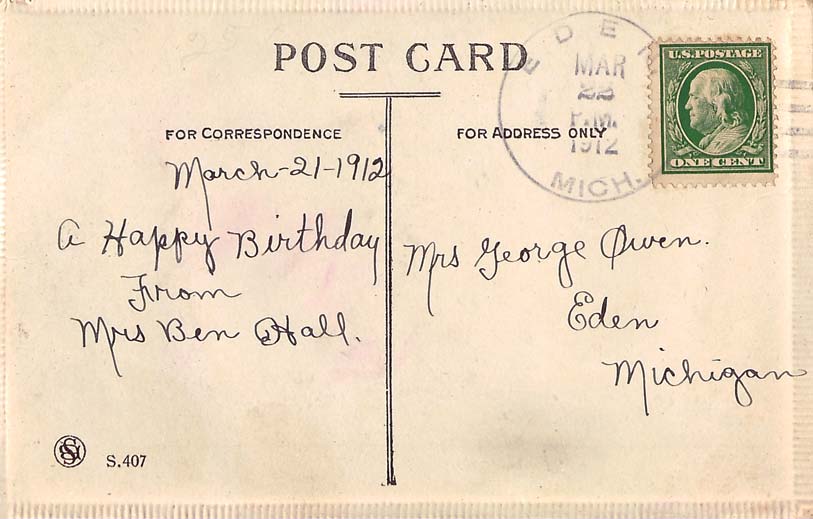 POST CARD
FOR CORRESPONDENCE
FOR ADDRESS ONLY
EDEN
MAR
22
P.M.
1912
MICH.
U.S. POSTAGE
ONE CENT
March-21-1912
A Happy Birthday
From
Mrs Ben Hall.
Mrs George Owen.
Eden
Michigan
S.407